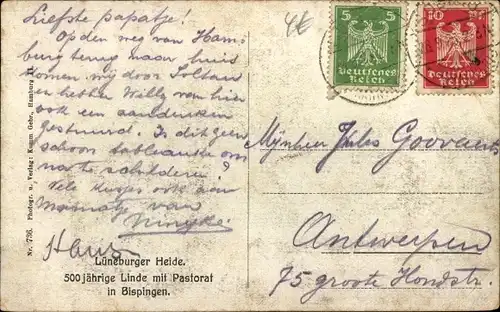 Liefste papatje!
Op den weg van Ham-
burg terug naar huis
komen wij door Soltau
en hebben Willy van hier
ook een aandenken
gestuurd. Is dit geen
schoon tableautje om
na te schilderen?
Vele kusjes ook aan
Mamatje van
Hans
Lüneburger Heide.
500 jährige Linde mit Pastorat
in Bispingen.
Nr. 736. Photogr. u. Verlag: Kumm Gebr., Hamburg
4€
5 5
Deutsches
Reich
10 Pf
Deutsches
Reich
Mijnheer Jules Goovaerts
Antwerpen
75 groote Hondstr.